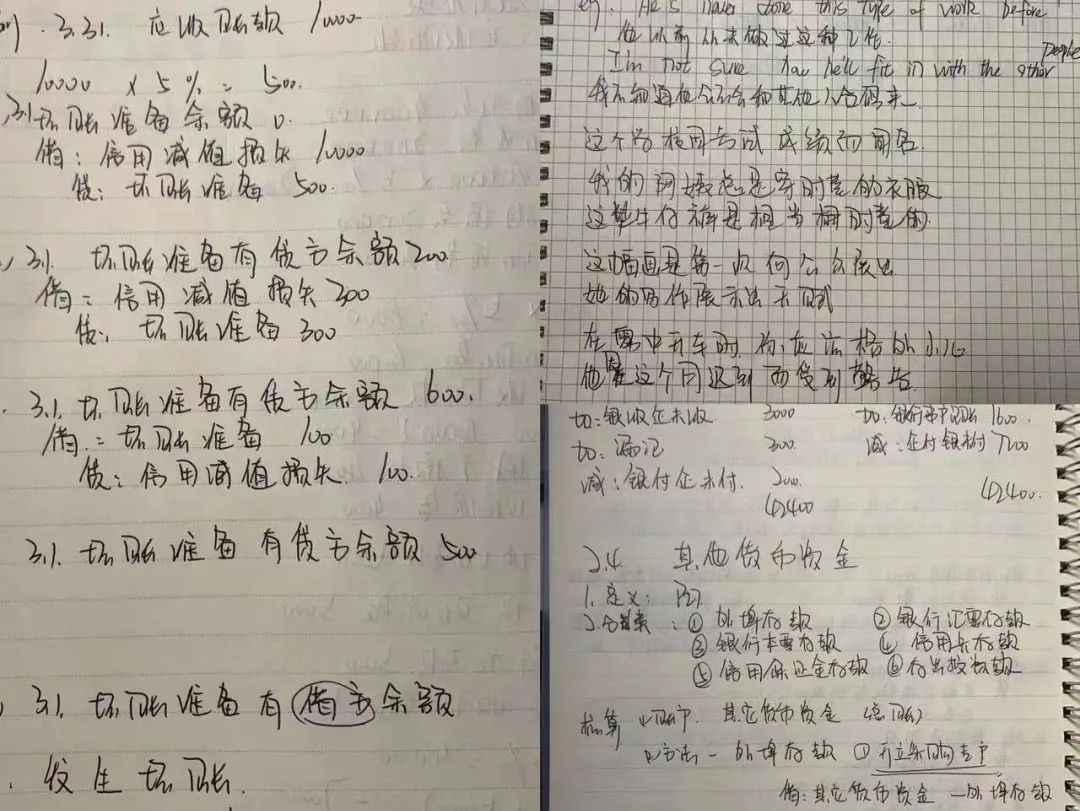 3.31. 应收账款 10000
10000 x 5% = 500.
3.1 坏账准备余额 0.
借: 信用减值损失 10000
贷: 坏账准备 500.
3.1. 坏账准备有贷方余额 200.
借: 信用减值损失 300
贷: 坏账准备 300
3.1. 坏账准备有贷方余额 600.
借: 坏账准备 100
贷: 信用减值损失 100.
3.1. 坏账准备有贷方余额 500
3.1. 坏账准备有借方余额
发生坏账.
eg. He's never done this type of work before
他以前从来做过这种工作.
people
I'm not sure how he'll fit in with the other
我不知道他会不会和其他人合得来
这个学校因考试成绩而闻名.
我的阿姨总是穿时髦的衣服
这些牛仔裤是相当时髦的
这幅画是第一次向公众展出
她的写作展示出天赋
在雾中开车时, 你应该格外小心
他因这个月迟到而受到警告.
加: 银收企未收 3000 加: 银行 1600.
加: 漏记 300. 减: 企付银未付 7200
减: 银付企未付. 200.
62400 62400.
2.4. 其他货币资金
1. 定义:
2. 分类: ① 外埠存款 ② 银行汇票存款
③ 银行本票存款 ④ 信用卡存款
⑤ 信用保证金存款 ⑥ 存出投资款
核算 账户. 其它货币资金 (总账)
方法 - 外埠存款 ① 开立采购专户
借: 其它货币资金 — 外埠存款